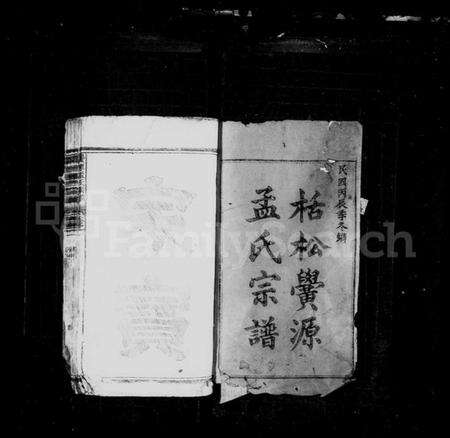 民國丙辰季冬
栝松黌源
孟氏宗譜
FamilySearch